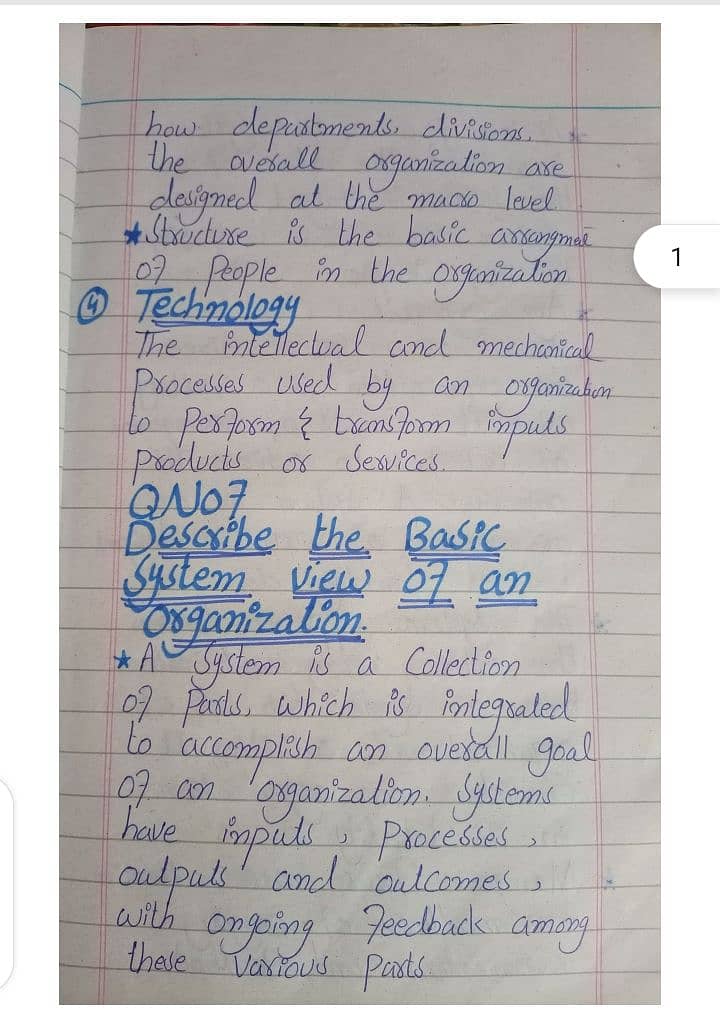 how departments, divisions,
the overall organization are
designed at the macro level
* Structure is the basic arrangmet
of People in the organization
④ Technology
The intellectual and mechanical
Processes used by an organization
to Perform & transform inputs
products or Services.
QNO7
Describe the Basic
System view of an
Organization.
* A System is a Collection
of Parts, which is integrated
to accomplish an overall goal
of an organization. Systems
have inputs, Processes,
outputs and outcomes,
with ongoing feedback among
these Various Parts.
1